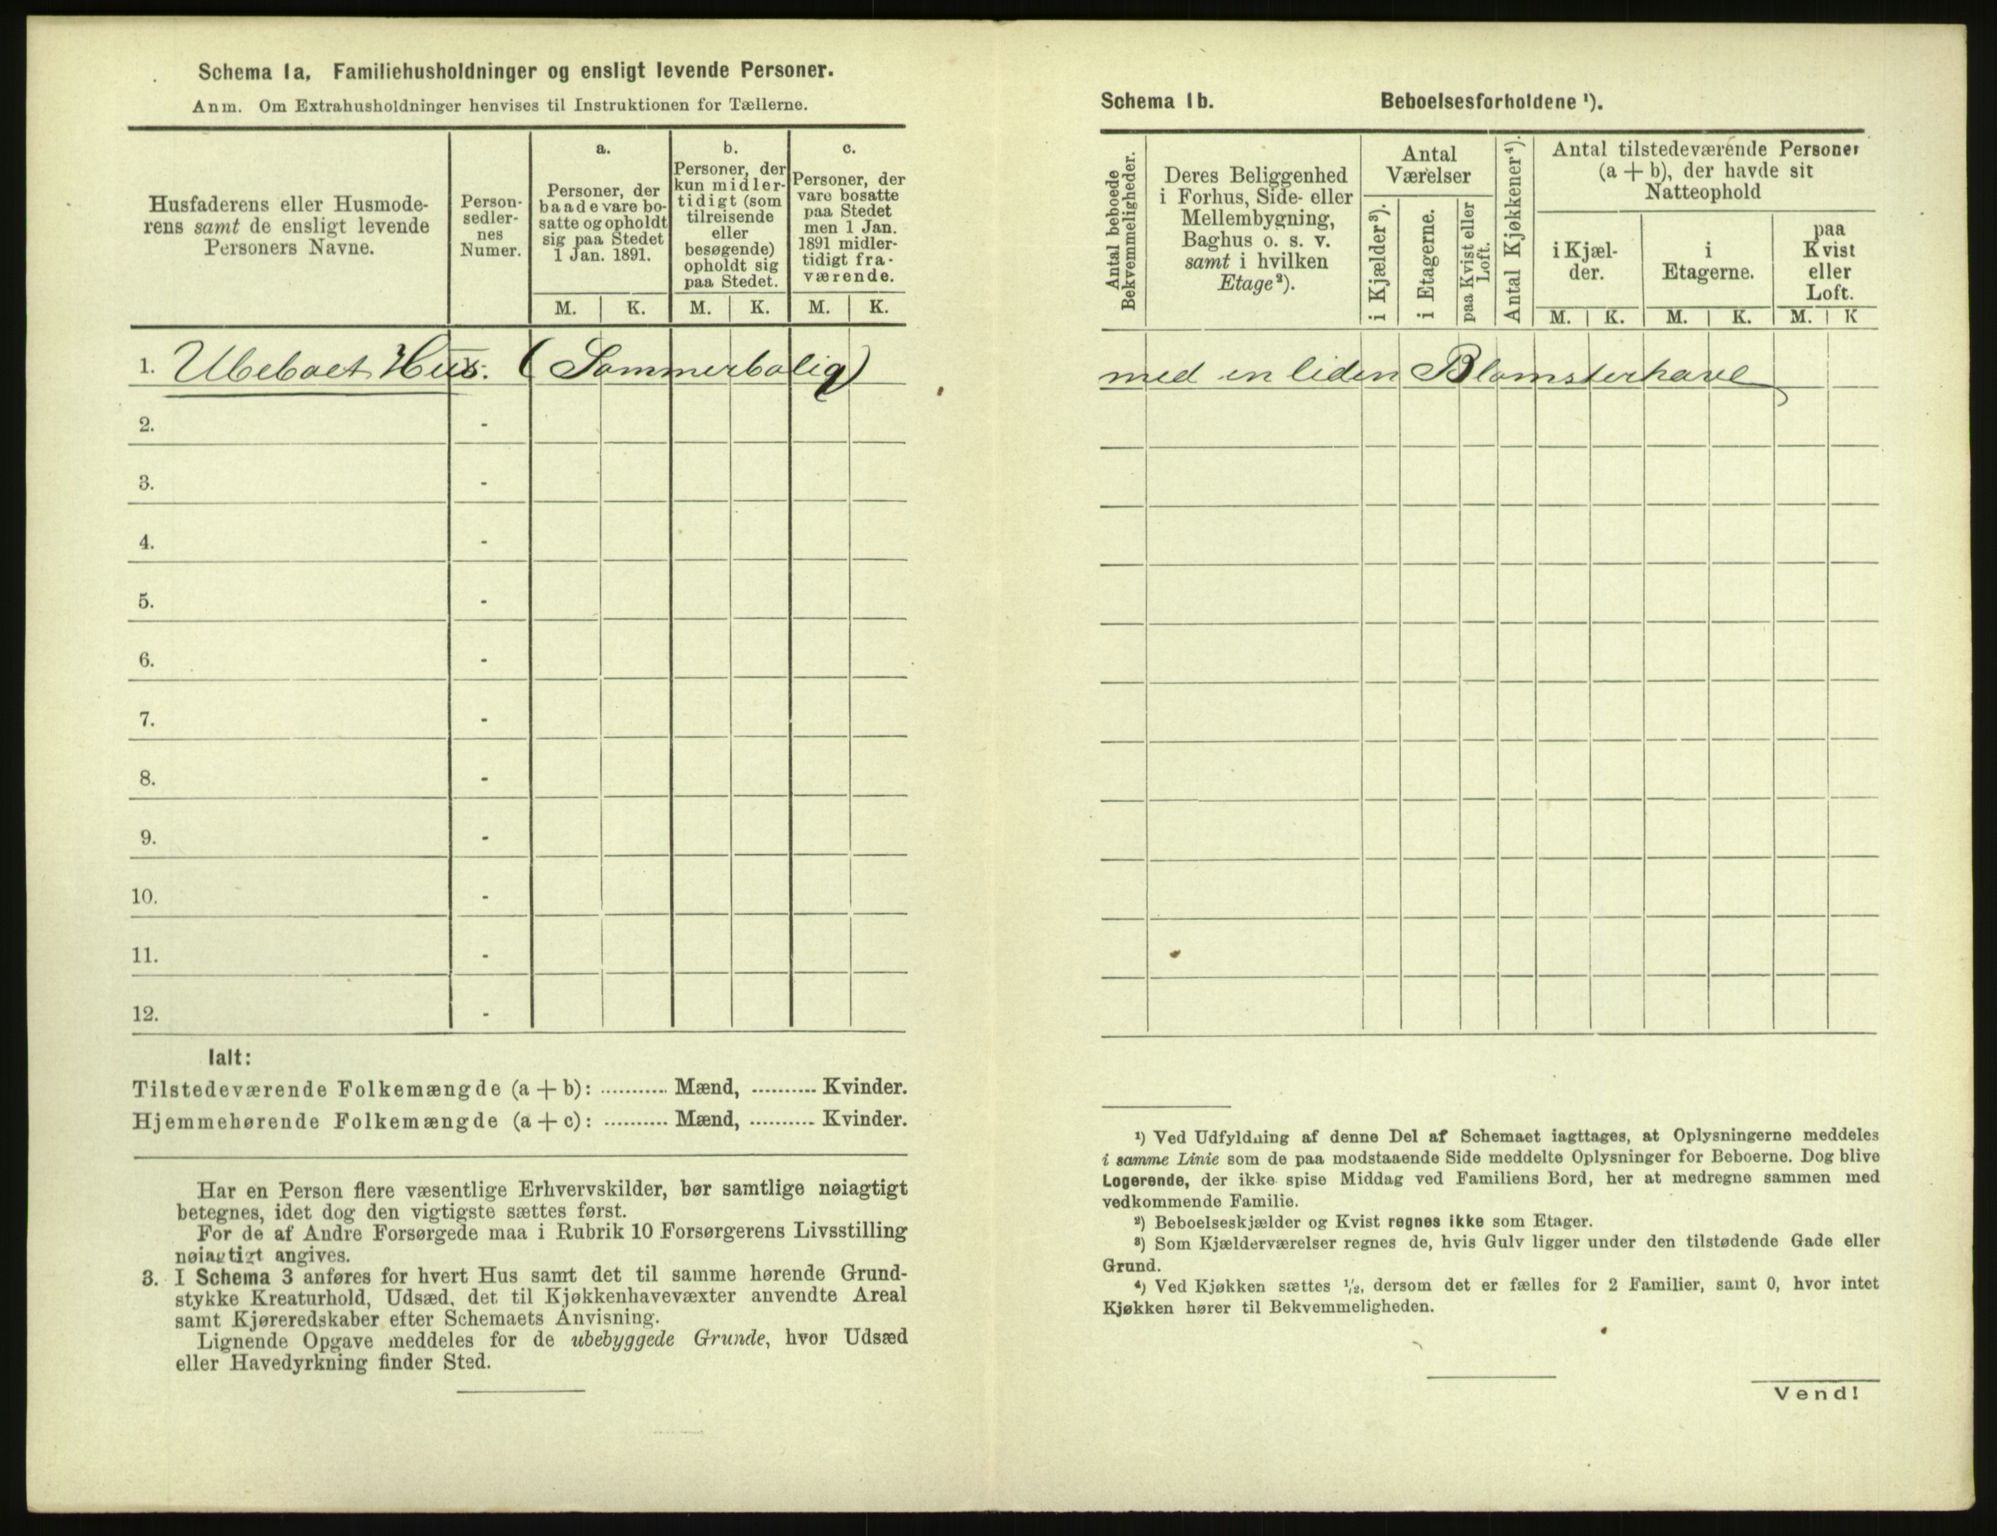 Schema 1a. Familiehusholdninger og ensligt levende Personer.
Anm. Om Extrahusholdninger henvises til Instruktionen for Tællerne.
Husfaderens eller Husmode-
rens samt de ensligt levende
Personers Navne.
Person-
sedler-
nes
Numer.
a.
Personer, der
baade vare bo-
satte og opholdt
sig paa Stedet
1 Jan. 1891.
b.
Personer, der
kun midler-
tidigt (som
tilreisende
eller
besøgende)
opholdt sig
paa Stedet.
c.
Personer, der
vare bosatte
paa Stedet
men 1 Jan.
1891 midler-
tidigt fra-
værende.
M. K. M. K. M. K.
1. Ubeboet Hus. (Sommerbolig)
2. -
3. -
4. -
5. -
6. -
7. -
8. -
9. -
10. -
11. -
12. -
Ialt:
Tilstedeværende Folkemængde (a + b): ........... Mænd, ........... Kvinder.
Hjemmehørende Folkemængde (a + c): ........... Mænd, ........... Kvinder.
Har en Person flere væsentlige Erhvervskilder, bør samtlige nøiagtigt
betegnes, idet dog den vigtigste sættes først.
For de af Andre Forsørgede maa i Rubrik 10 Forsørgerens Livsstilling
nøiagtigt angives.
3. I Schema 3 anføres for hvert Hus samt det til samme hørende Grund-
stykke Kreaturhold, Udsæd, det til Kjøkkenhavevæxter anvendte Areal
samt Kjøreredskaber efter Schemaets Anvisning.
Lignende Opgave meddeles for de ubebyggede Grunde, hvor Udsæd
eller Havedyrkning finder Sted.
Schema 1b. Beboelsesforholdene ¹).
Antal beboede
Bekvemmeligheder.
Deres Beliggenhed
i Forhus, Side- eller
Mellembygning,
Baghus o. s. v.
samt i hvilken
Etage²).
Antal
Værelser
i Kjælder³).
i Etagerne.
paa Kvist eller
Loft.
Antal Kjøkkener⁴).
Antal tilstedeværende Personer
(a + b), der havde sit
Natteophold
i Kjæl-
der.
i
Etagerne.
paa
Kvist
eller
Loft.
M. K. M. K. M. K
med en liden Blomsterhave
¹) Ved Udfyldning af denne Del af Schemaet iagttages, at Oplysningerne meddeles
i samme Linie som de paa modstaaende Side meddelte Oplysninger for Beboerne. Dog blive
Logerende, der ikke spise Middag ved Familiens Bord, her at medregne sammen med
vedkommende Familie.
²) Beboelseskjælder og Kvist regnes ikke som Etager.
³) Som Kjælderværelser regnes de, hvis Gulv ligger under den tilstødende Gade eller
Grund.
⁴) Ved Kjøkken sættes ½, dersom det er fælles for 2 Familier, samt 0, hvor intet
Kjøkken hører til Bekvemmeligheden.
Vend!